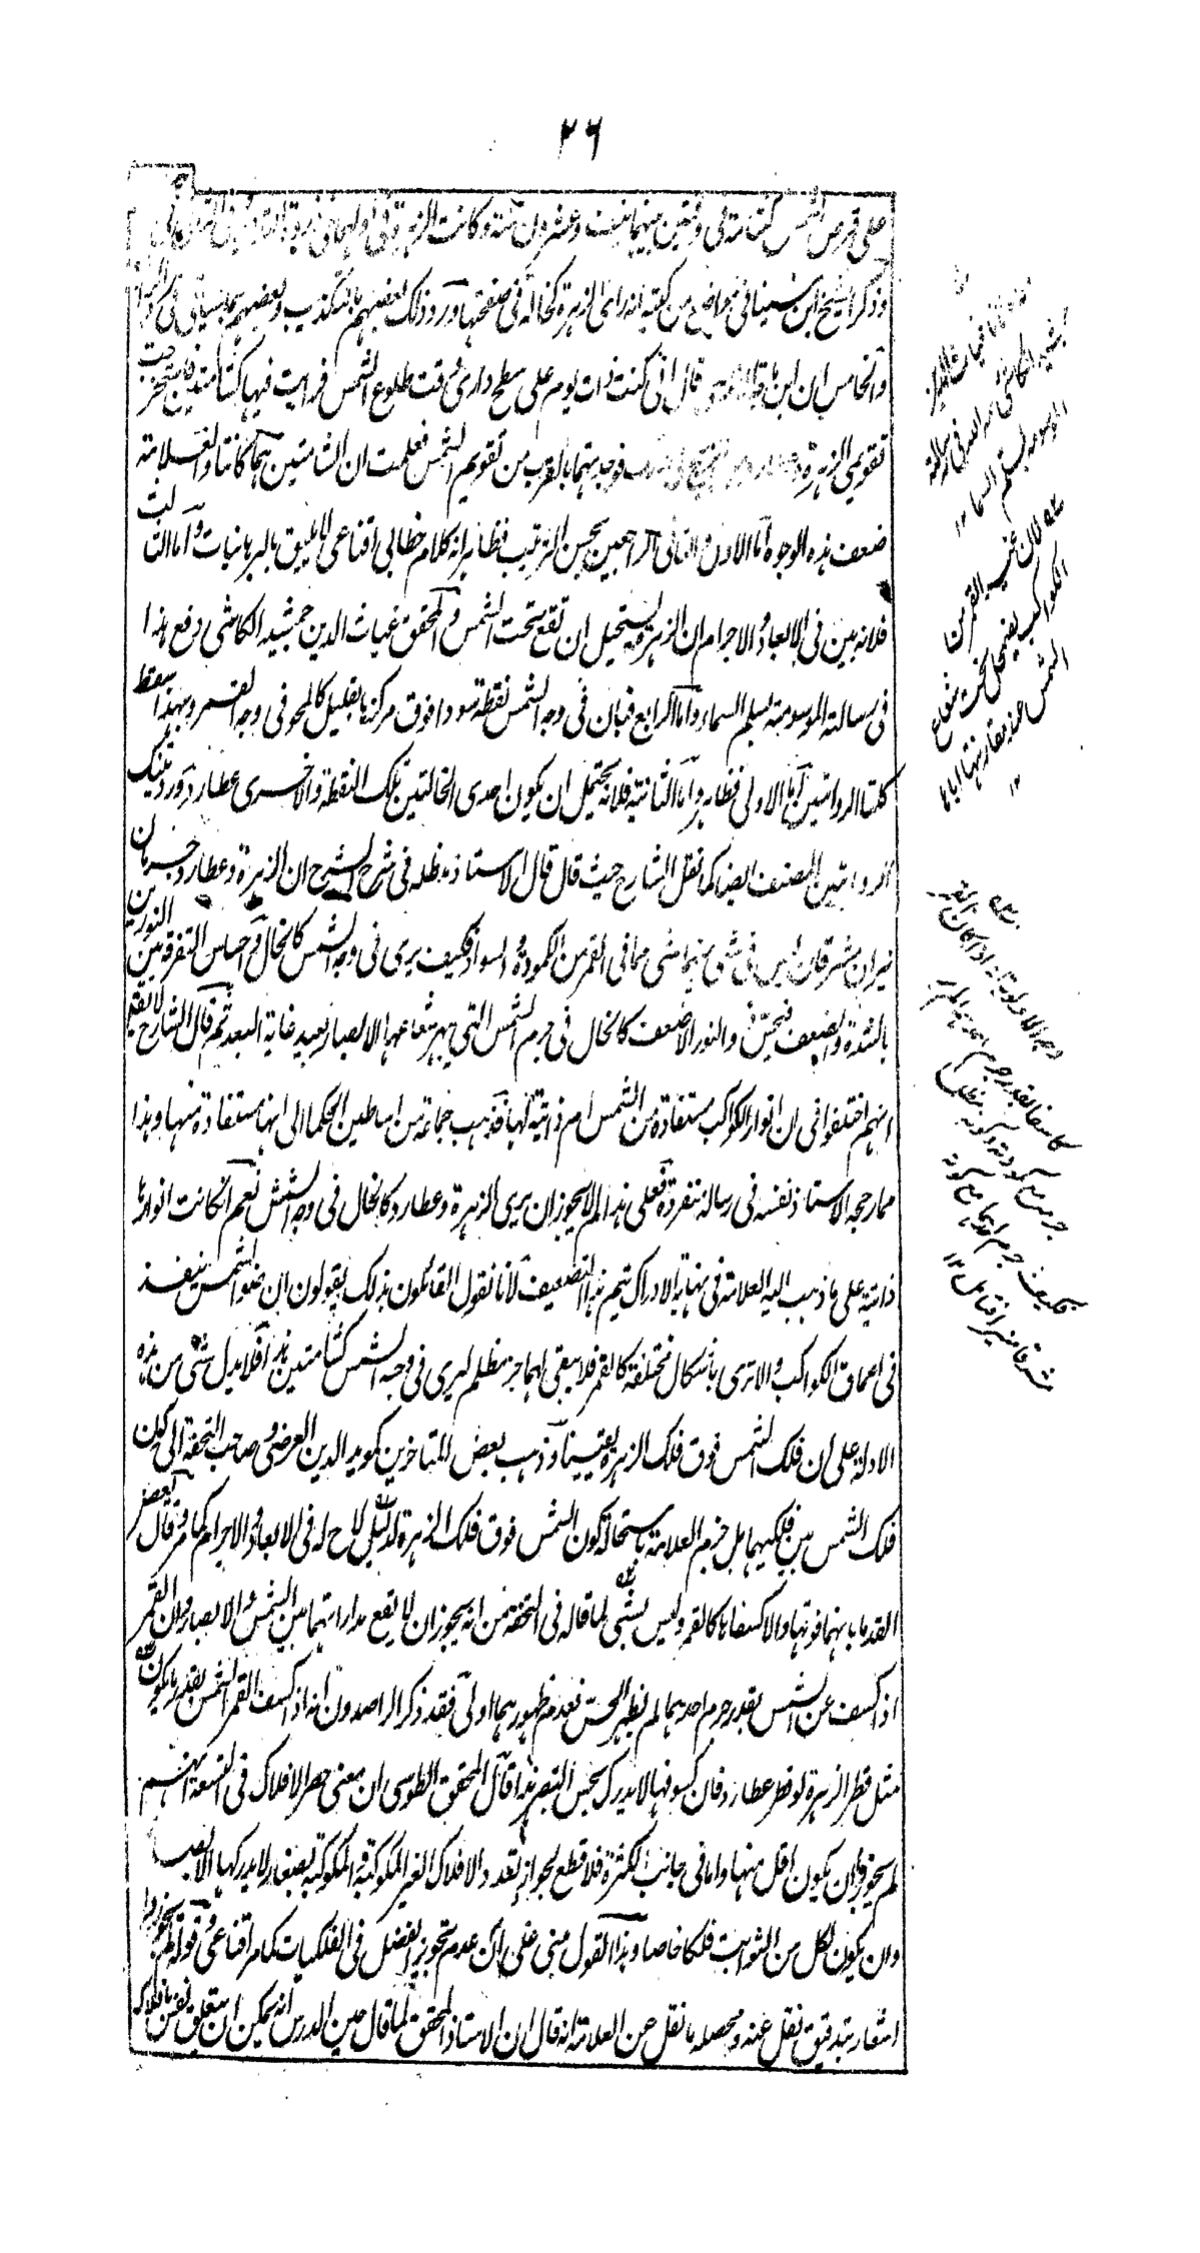 ٢٦
على قرص الشمس كشامة فى وقتين بينهما نيف وعشرون سنة وكانت الزهرة فى اوليهما فى ذروة التدوير وفى
وذكر الشيخ ابن سينا فى مواضع من كتبه انه راى الزهرة كخالة فى صفحتها ورد ذلك بعضهم بالتكذيب وبعضهم بما سيأتى فى
والخامس ان ابن قال انى كنت ذات يوم على سطح دارى وقت طلوع الشمس فرايت فيها كشامتين فاستخرجت
تقويمى الزهرة فوجدتهما بالقرب من تقويم الشمس فعلمت ان الشامتين هما كانتا والعلامة
ضعف هذه الوجوه اما الاول والثانى الراجعين بحسن الترتيب فظاهر انه كلام خطابى اقناعى لا يليق بالبرهانيات واما الثالث
فلانه بين فى الابعاد والاجرام ان الزهرة يستحيل ان تقع تحت الشمس والمحقق غياث الدين جمشيد الكاشى دفع هذا
فى رسالته الموسومة بسلم السماء واما الرابع فبان فى وجه الشمس نقطة سودا فوق مركزها بقليل كالمحو فى وجه القمر وبهذا سقط
كلتا الروايتين اما الاولى فظاهر واما الثانية فلانه يحتمل ان يكون احدى الخالتين تلك النقطة والاخرى عطارد ورد تينك
الروايتين المصنف ايضا كما نقل الشارح حيث قال قال الاستاذ مد ظله فى شرح الشرح ان الزهرة وعطارد جرمان
نيران مشرقان ليس فى شئ منهما شئ مما فى القمر من الكمودة والسواد فكيف يرى فى وجه الشمس كالخال واحساس التفرقة بين النورين
بالشدة والضعف فيحس والنور الاضعف كالخال فى جرم الشمس التى يبهر شعاعها الابصار بعيد غاية البعد ثم قال الشارح لا يقال
انهم اختلفوا فى ان انوار الكواكب مستفادة من الشمس ام ذاتية لها فذهب جماعة من اساطين الحكما الى انها مستفادة منها وهذا
مما رجحه الاستاذ نفسه فى رسالة منفردة فعلى هذا لم لا يجوز ان يرى الزهرة وعطارد كالخال فى وجه الشمس نعم ان كانت انوارها
ذاتية على ما ذهب اليه العلامة فى نهاية الادراك يتم هذا التضعيف لانا نقول القائلون بذلك يقولون ان ضوء الشمس ينفذ
فى اعماق الكواكب والا ترى باشكال مختلفة كالقمر فلا يبقى لهما جزء مظلم ليرى فى وجه الشمس كشامتين هذا فلا يدل شئ من هذه
الادلة على ان فلك الشمس فوق فلك الزهرة يقينا وذهب بعض المتاخرين كمويد الدين العرضى وصاحب التحفة الى كون
فلك الشمس بين فلكيهما بل جزم العلامة باستحالة كون الشمس فوق فلك الزهرة لدليل لاح له فى الابعاد والاجرام كما مر وقال بعض
القدما بانهما فوقها والا كسفاها كالقمر وليس بشئ لما قاله فى التحفة من انه يجوز ان لا يقع مداراتهما بين الشمس والابصار وان القمر
اذا كسف عن الشمس بقدر جرم احدهما لم يظهر للحس فعدم ظهورهما اولى فقد ذكر الراصدون انه اذا كسف القمر الشمس بقدر ما يكون
مثل قطر الزهرة او قطر عطارد فان كسوفها لا يدرك بحس البصر هذا قال المحقق الطوسى ان معنى حصر الافلاك فى التسعة انهم
لم يجوزوا ان يكون اقل منها واما فى جانب الكثرة فلا قطع لجواز تعدد الافلاك الغير المكوكبة او المكوكبة بصغار لا يدركها الابصار
وان يكون لكل من الثوابت فلكا خاصا وهذا القول مبنى على ان عدم تجويز الفضل فى الفلكيات كما مر اقناعى وقوله لم يجوزوا
اشعار بتدقيق نقل عنه ومحصله ما نقل عن العلامة انه قال ان الاستاذ المحقق لما قال حين الدرس انه يمكن ان يتعلق نفس بافلاك
جمشيد الكاشى رحمه الله فى رسالته
الموسومة بسلم السما ١٢
لان غير القمر من
الكواكب يضمحل تحت شعاع
الشمس عند مقارنتها اياها
١٢
كاسفا بقدر جرم
جرم مع كمودته وكونه مظلما
فكيف جرم احدهما مع كونه
مشرقا منيرا فتامل ١٢